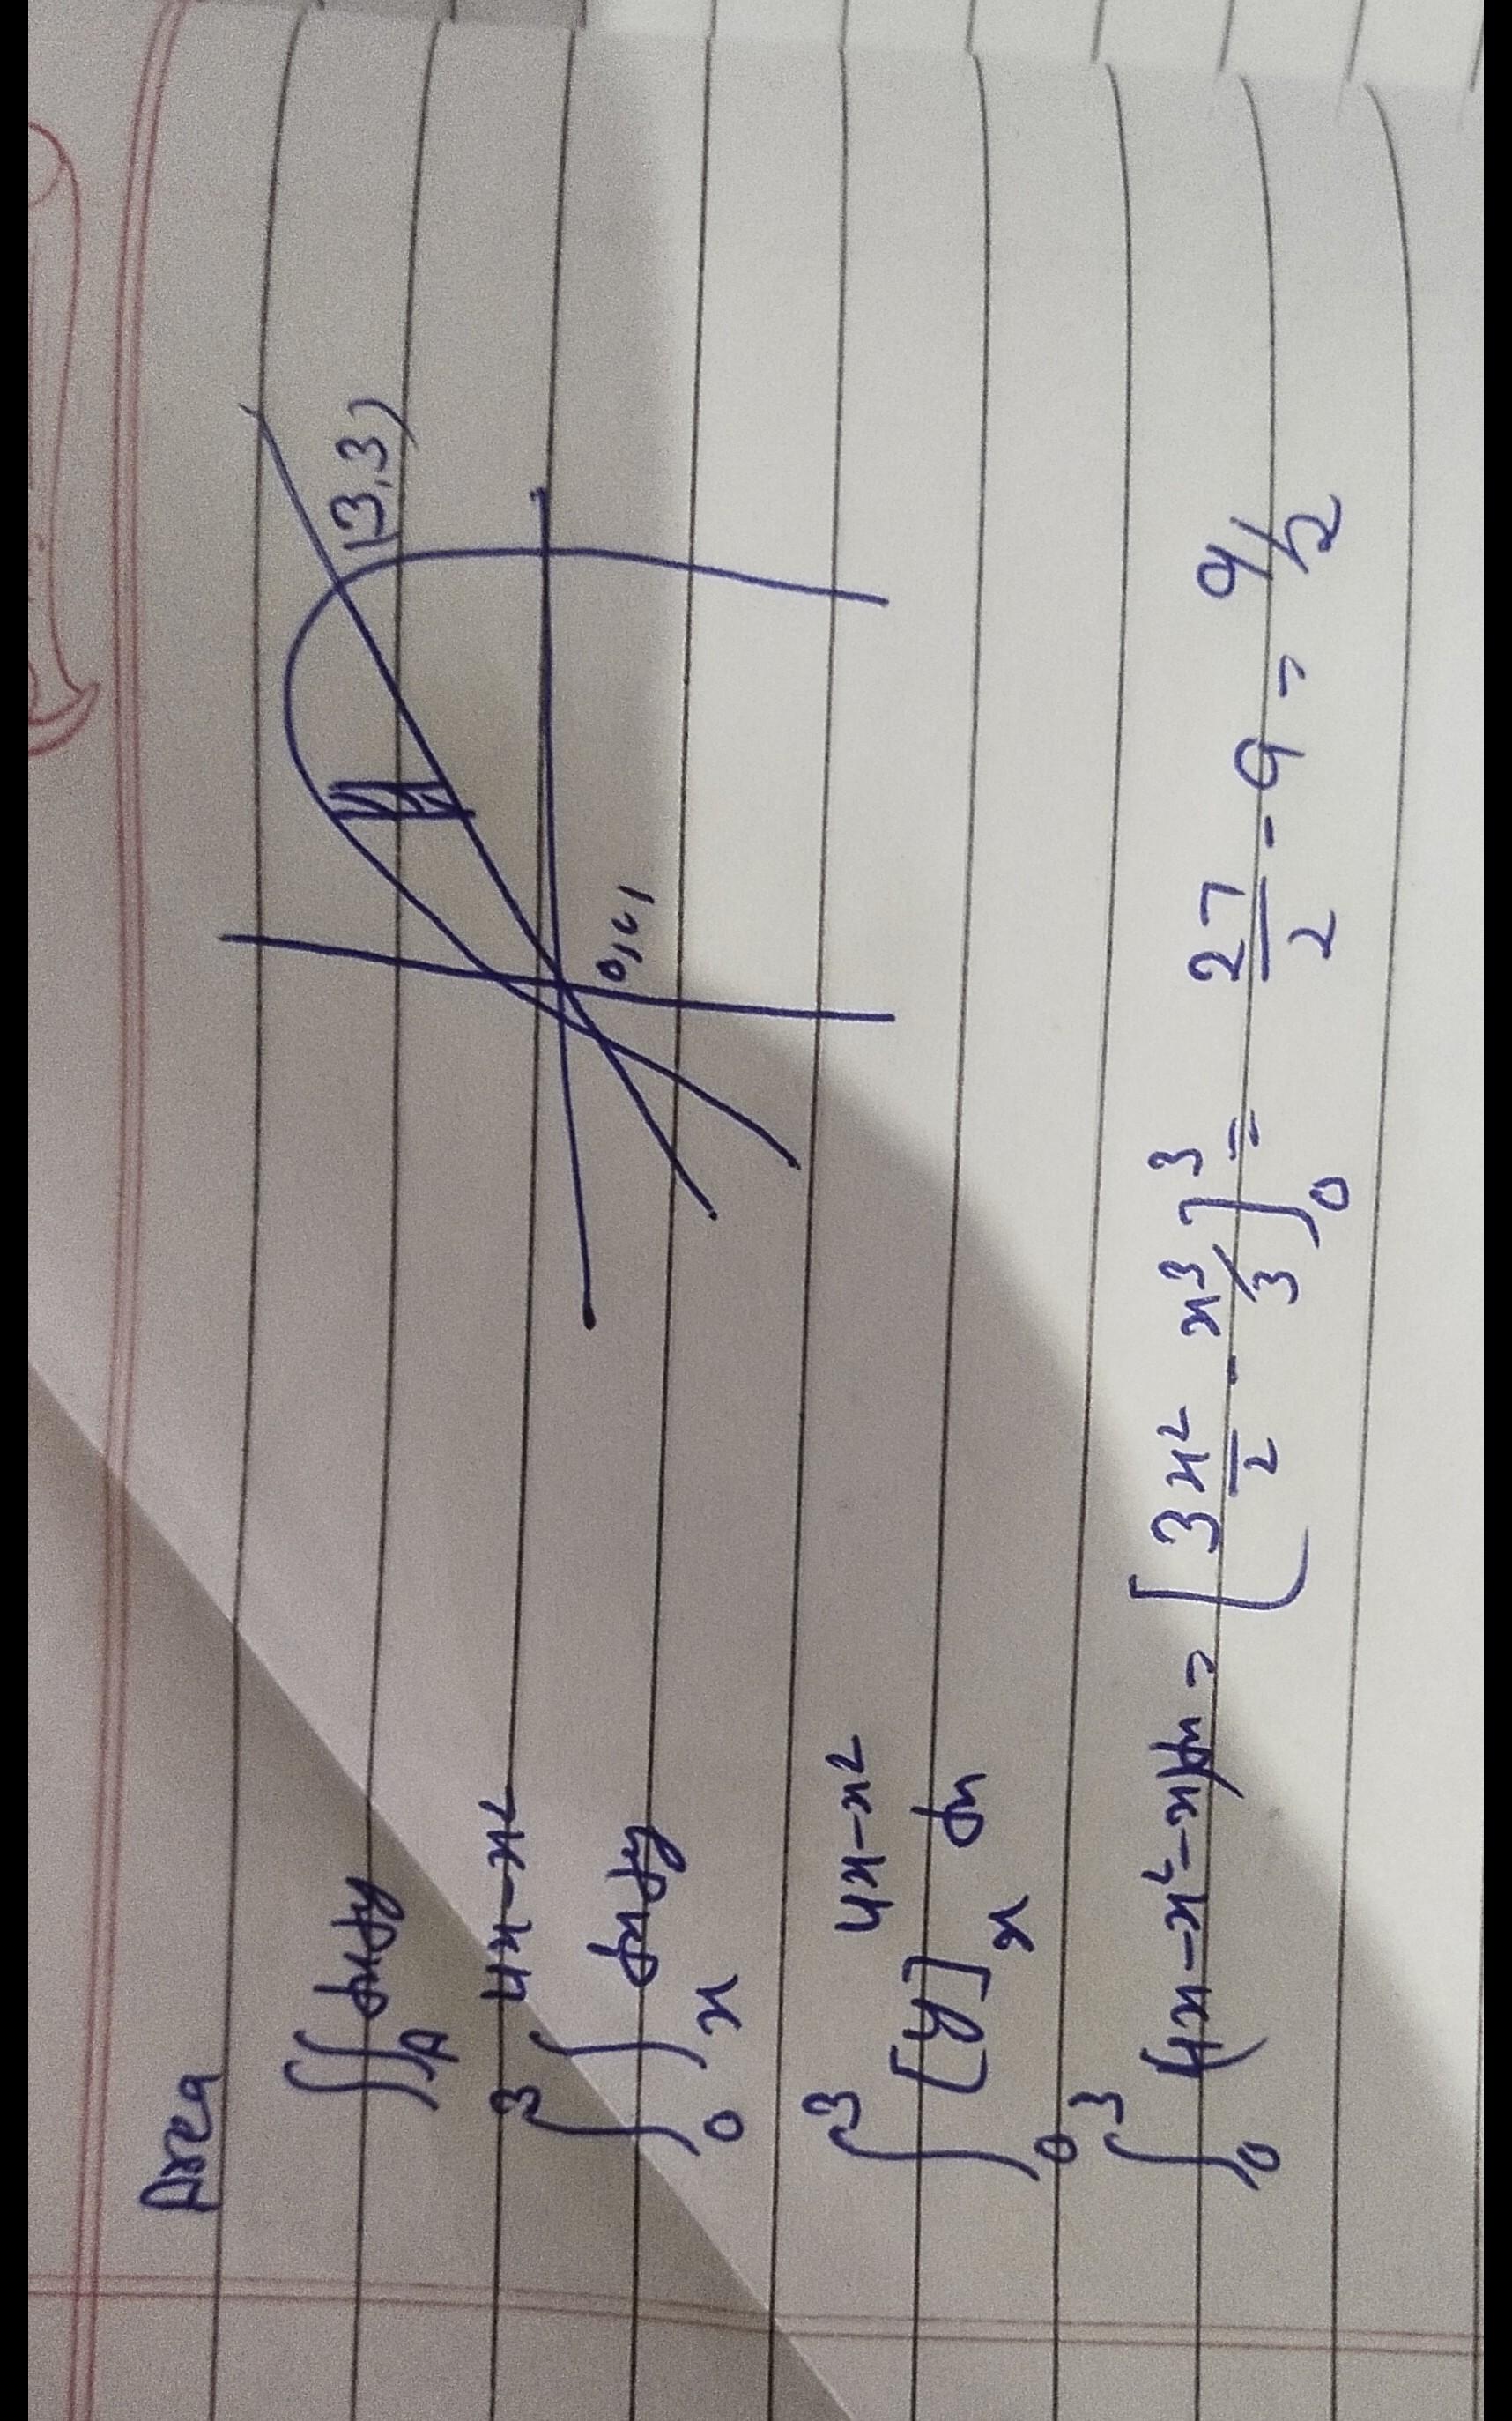 Area
(3,3)
∬_A dxdy
∫_0^3 ∫_x^{4x-x²} dxdy
∫_0^3 [y]_x^{4x-x²} dx
∫_0^3 (4x-x²-x)dx = [3x²/2 - x³/3]_0^3 = 27/2 - 9 = 9/2